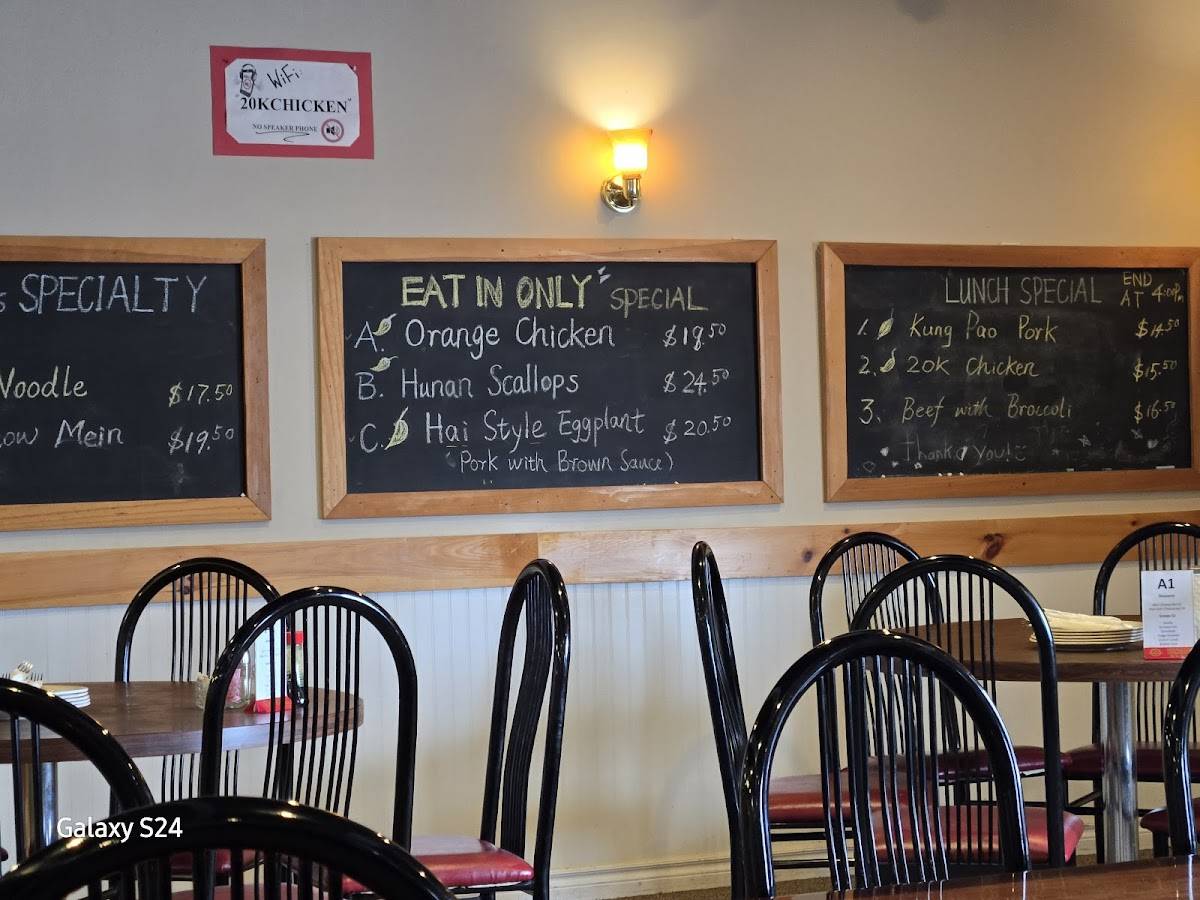 WiFi:
20KCHICKEN
NO SPEAKER PHONE
SPECIALTY
Noodle $17.50
ow Mein $19.50
EAT IN ONLY SPECIAL
A. Orange Chicken $18.50
B. Hunan Scallops $24.50
C. Hai Style Eggplant $20.50
(Pork with Brown Sauce)
LUNCH SPECIAL END AT 4:00Pm
1. Kung Pao Pork $14.50
2. 20K Chicken $15.50
3. Beef with Broccoli $16.50
Thank you!
A1
Galaxy S24